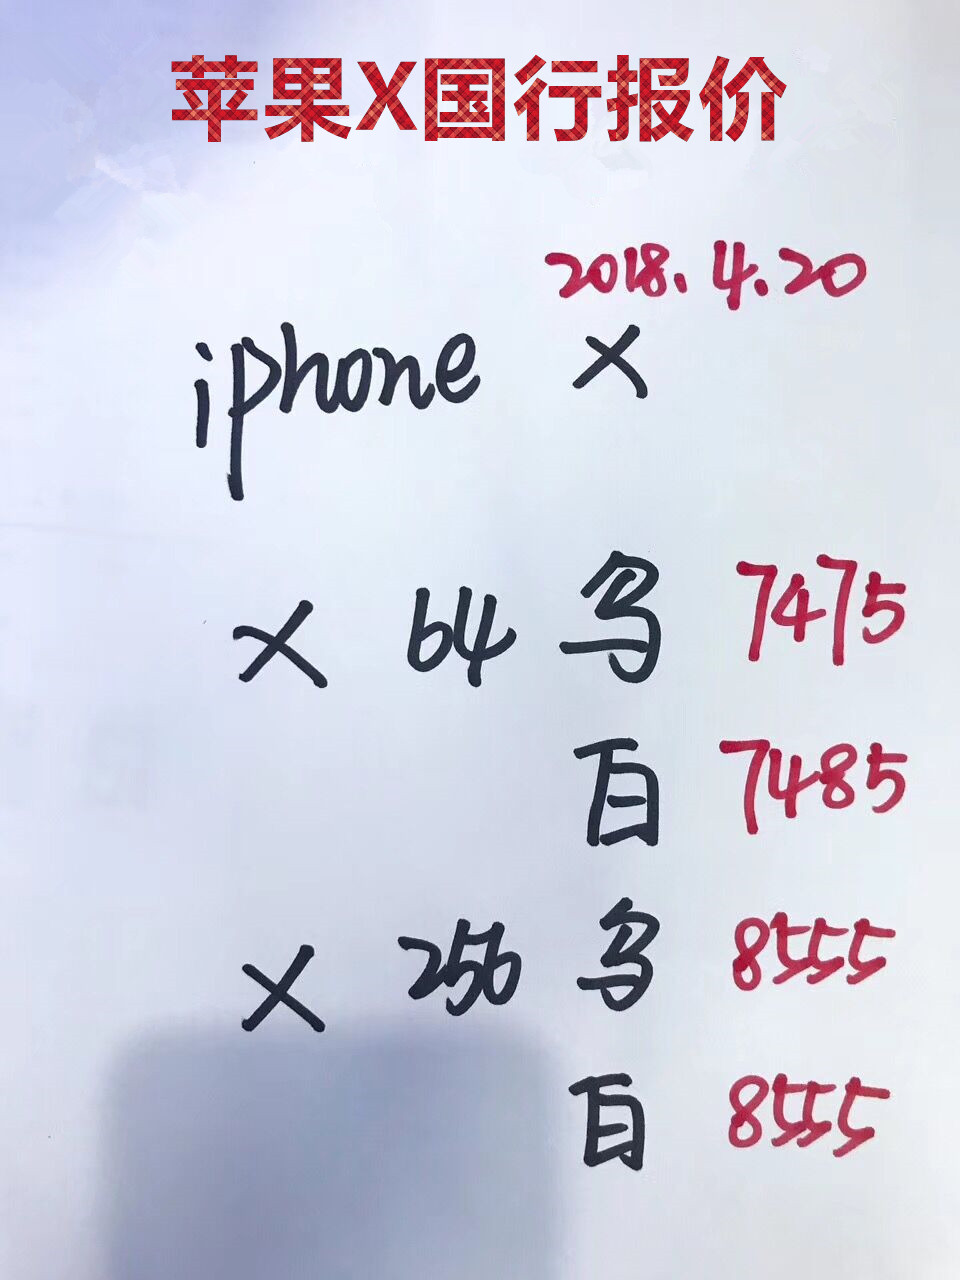 苹果X国行报价
2018.4.20
iphone X
X 64 乌 7475
百 7485
X 256 乌 8555
百 8555